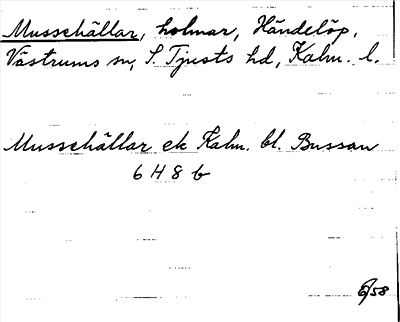 Mussehällar, holmar, Händelöp,
Västrums sn, S. Tjusts hd, Kalm. l.
Mussehällar ek Kalm. bl. Bussan
6 H 8 b
6/58